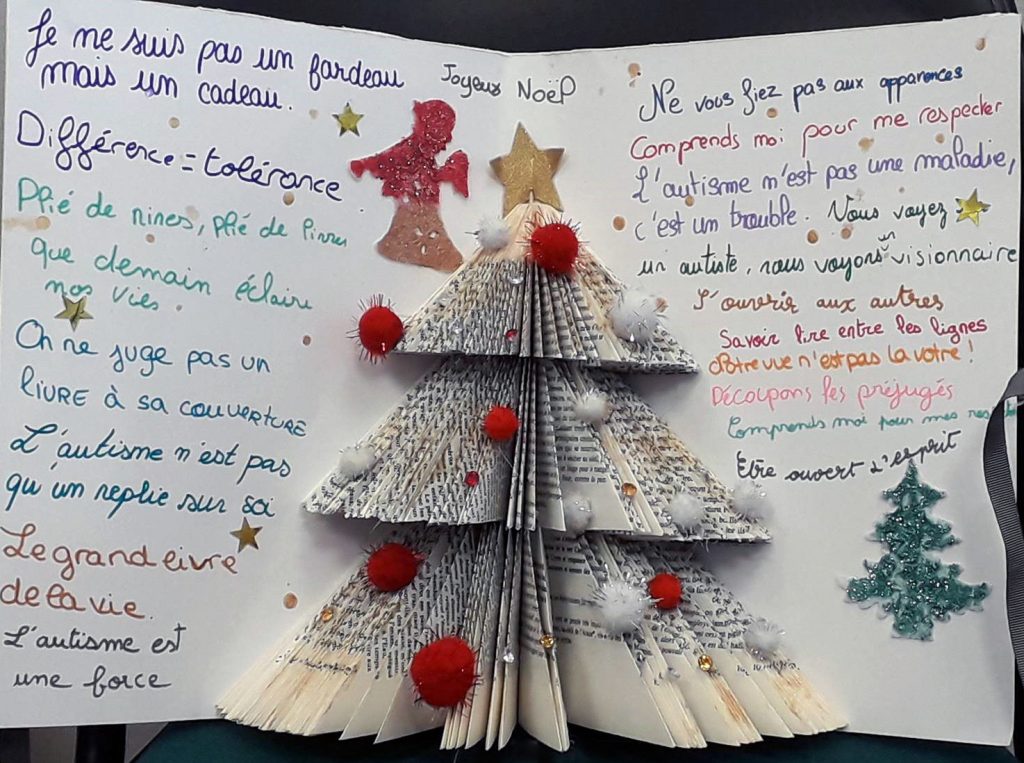 Je ne suis pas un fardeau
mais un cadeau.
Différence = tolérance
Plié de rires, plié de livres
que demain éclaire
nos vies.
On ne juge pas un
livre à sa couverture
L'autisme n'est pas
qu'un replie sur soi
Le grand livre
de la vie.
L'autisme est
une force
Joyeux Noël
Ne vous fiez pas aux apparences
Comprends moi pour me respecter
L'autisme n'est pas une maladie,
c'est un trouble. Vous voyez
un autiste, nous voyons un visionnaire
S'ouvrir aux autres
Savoir lire entre les lignes
Notre vue n'est pas la votre !
Découpons les préjugés
Comprends moi pour mes
Etre ouvert d'esprit